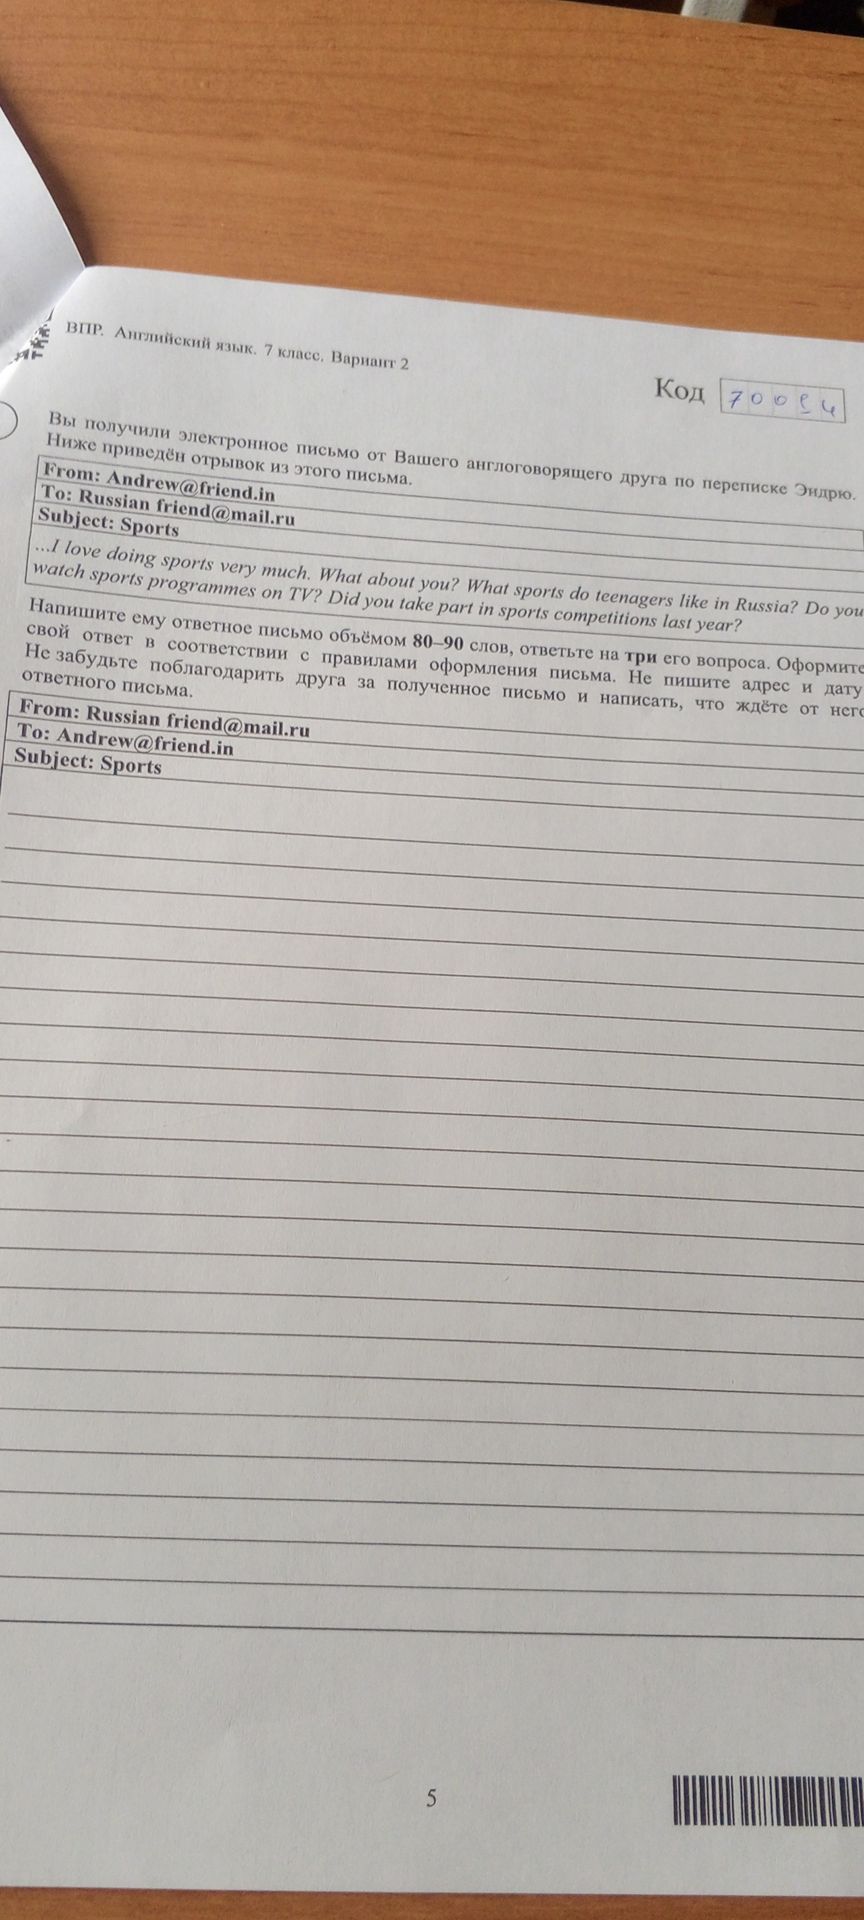 ВПР. Английский язык. 7 класс. Вариант 2
Код 70094
Вы получили электронное письмо от Вашего англоговорящего друга по переписке Эндрю.
Ниже приведён отрывок из этого письма.
From: Andrew@friend.in
To: Russian friend@mail.ru
Subject: Sports
...I love doing sports very much. What about you? What sports do teenagers like in Russia? Do you
watch sports programmes on TV? Did you take part in sports competitions last year?
Напишите ему ответное письмо объёмом 80–90 слов, ответьте на три его вопроса. Оформите
свой ответ в соответствии с правилами оформления письма. Не пишите адрес и дату.
Не забудьте поблагодарить друга за полученное письмо и написать, что ждёте от него
ответного письма.
From: Russian friend@mail.ru
To: Andrew@friend.in
Subject: Sports
5